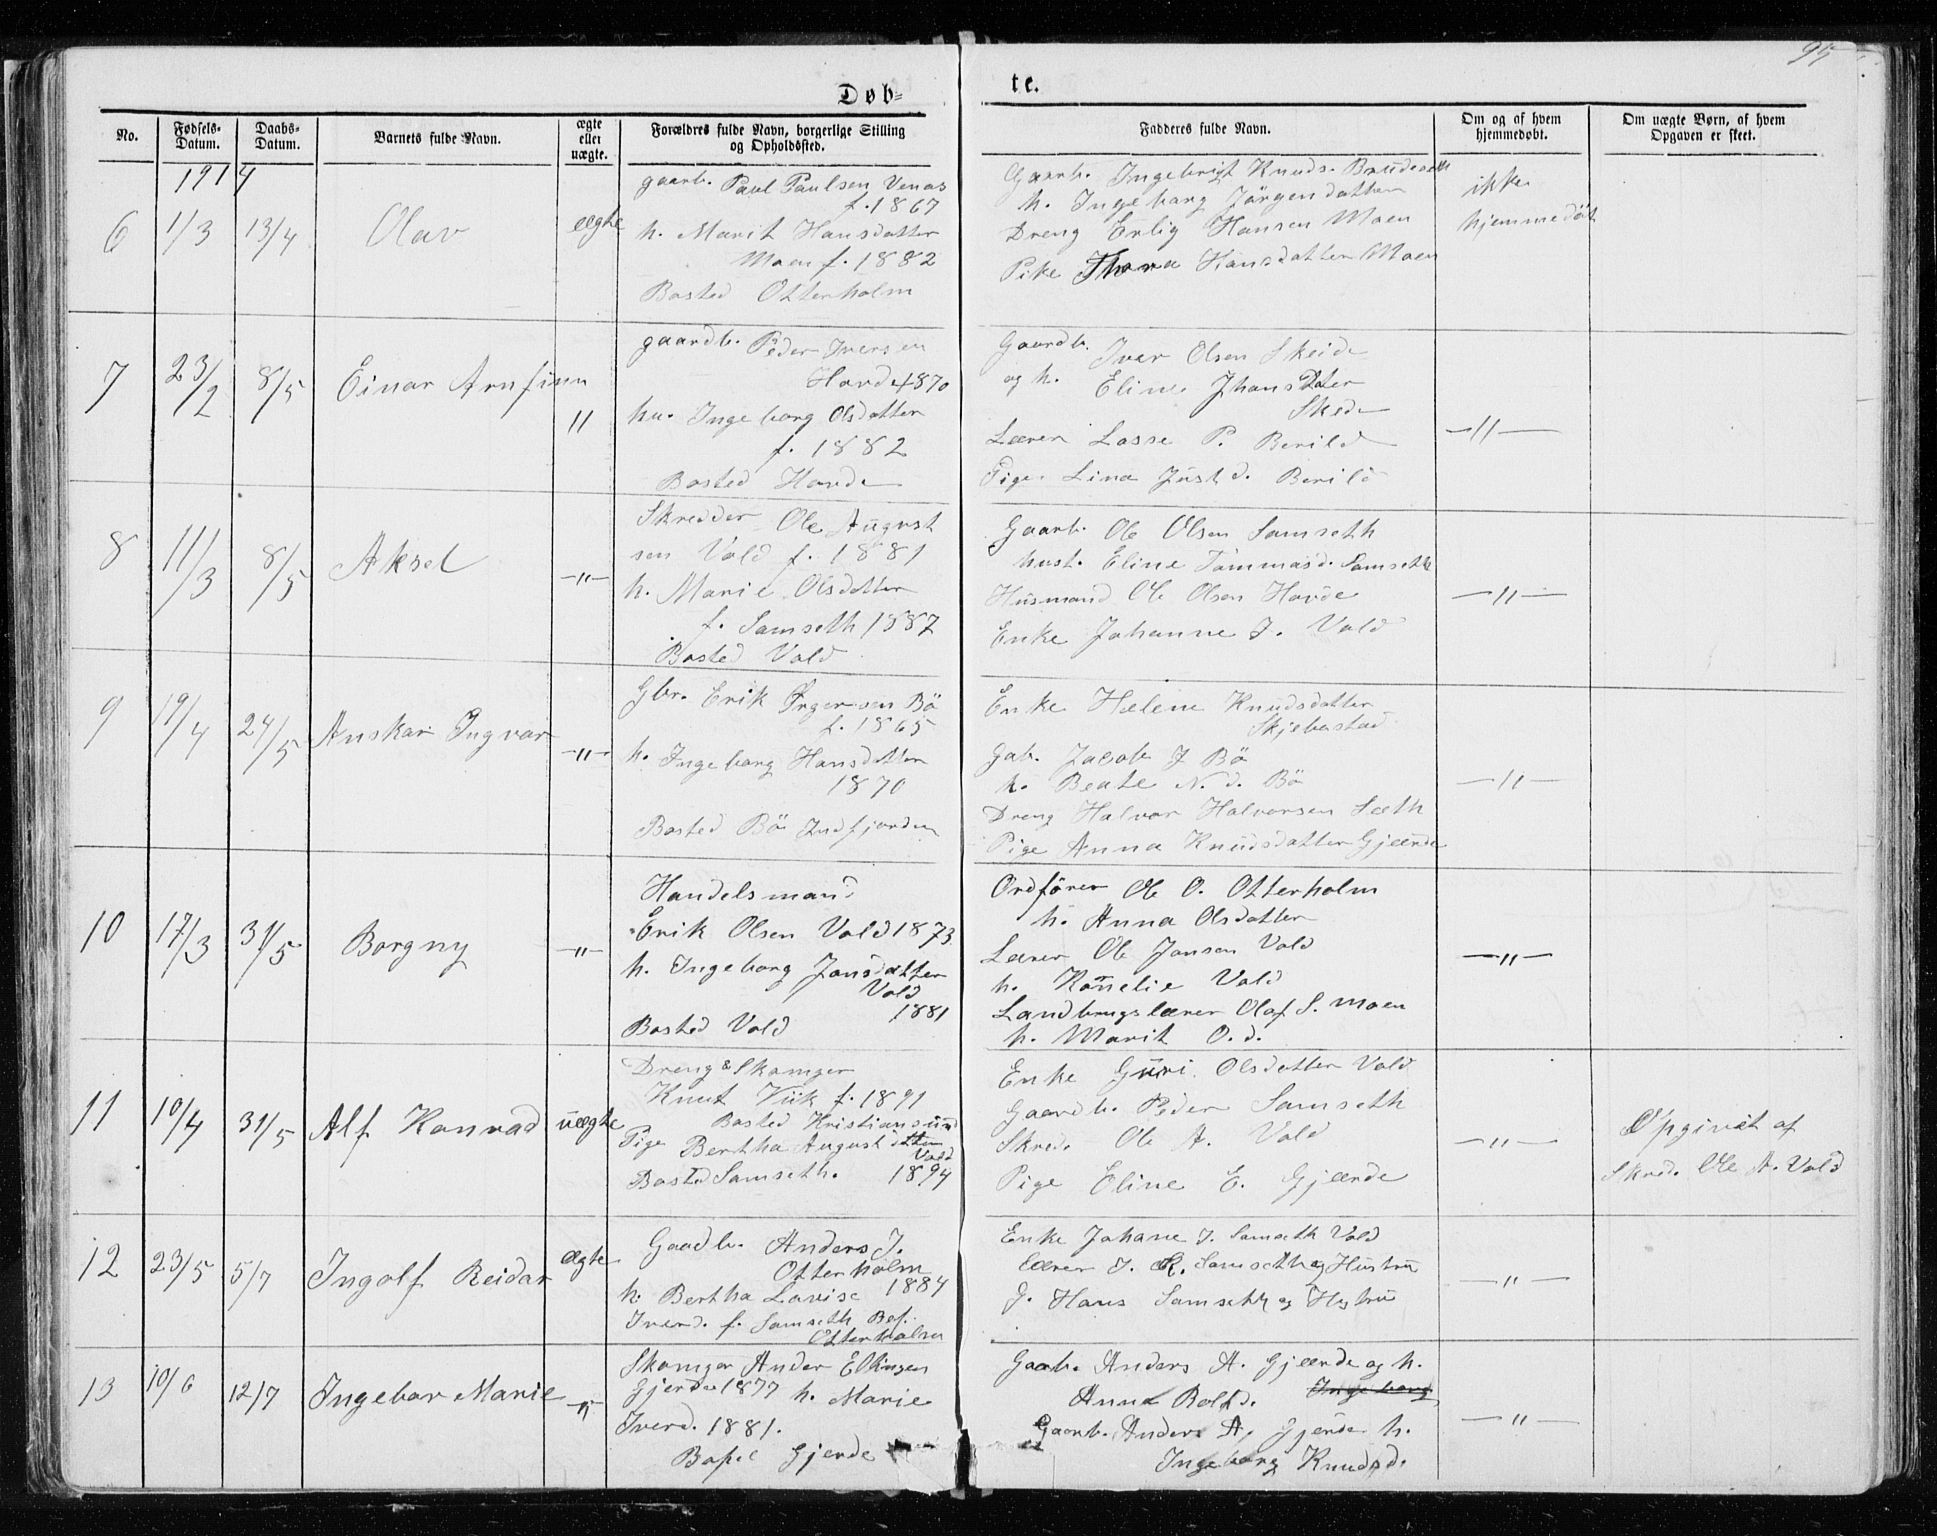 95
Døb=
te.
No.
Fødsels-
Datum.
Daabs-
Datum.
Barnets fulde Navn.
ægte
eller
uægte.
Forældres fulde Navn, borgerlige Stilling
og Opholdssted.
Fadderes fulde Navn.
Om og af hvem
hjemmedøbt.
Om uægte Børn, af hvem
Opgaven er skeet.
1914
6
1/3
13/4
Olav
ægte
gaarb. Paul Paulsen Venaas
f. 1867
h. Marit Hansdatter
Moen f. 1882
Bosted Otterholm
Gaarb. Ingebrigt Knuds. Brudeseth
h. Ingeborg Jørgensdatter
Dreng Erlig Hansen Moen
Pike Thora Hansdatter Moen
ikke
hjemmedöbt
7
23/2
8/5
Einar Arnfinn
"
gaardb. Peder Iversen
Hovde 1870
hu. Ingeborg Olsdatter
f. 1882
Bosted Hovde
Gaardb. Iver Olsen Skeide
og h. Eline Jhansdater
Skede
Lærer Lasse P. Berild
Pige Lina Just d. Berild
—"—
8
11/3
8/5
Aksel
—"—
Skredder Ole August
sen Vold f. 1881
h. Marie Olsdatter
f. Samseth 1887
Bosted Vold
Gaarb. Ole Olsen Samseth
hust. Eline Tommasd. Samseth
Husmand Ole Olsen Hovde
Enke Johanne J. Vold
—"—
9
19/4
24/5
Anskar Ingvar
—"—
Gbr. Erik Ørgersen Bö
f. 1865
h. Ingeborg Hansdatter
1870
Bosted Bö Indfjorden
Enke Helene Knudsdatter
Skjebastad
Gab. Jacob J Bö
h. Beate N. d. Bö
Dreng Halvor Halvorsen Sæth
Pige Anna Knudsdatter Gjærde
—"—
10
17/3
31/5
Borgny
—"—
Handelsmand
Erik Olsen Vold 1873
h. Ingeborg Jonsdatter
Vold
1881
Bosted Vold
Ordförer Ole O. Otterholm
h. Anna Olsdatter
Lærer Ole Jansen Vold
h. Kornelie Vold
Landbrugslærer Olaf S. Moen
h. Marit O. d.
—"—
11
10/4
31/5
Alf Konrad
uægte
Dreng & Skomger
Knut Viik f. 1891
Bosted Kristiansund
Pige Bertha Augustdatter
Vold
Bosted Samseth. 1894
Enke Guri Olsdatter Vold
Gaardb. Peder Samseth
Skred. Ole A. Vold
Pige Eline E. Gjærde
—"—
Opgivet af
Skred. Ole A. Vold
12
23/5
5/7
Ingolf Reidar
ægte
Gaadb. Anders J.
Otterholm
h. Bertha Lovise 1884
Iverd. f. Samseth Bef.
Otterholm
Enke Johane J. Samseth Vold
Lærer J. K. Samseth og Hustru
G. Hans Samseth og Hustru
—"—
13
10/6
12/7
Ingebor Marie
—"—
Skomger Ander Ellingsen
Gjerde 1877 h. Marie
Iverd. 1881.
Bopel Gjerde
Gaab. Anders A. Gjærde og h.
Anna Rolfd. Ingeborg
Gaarb. Anders A. Gjerde h.
Ingeborg Knudsd.
—"—